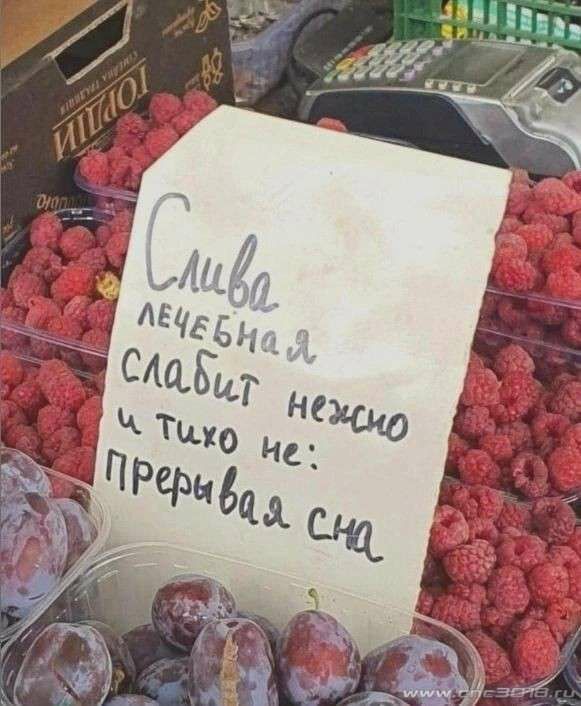 Слива
лечебная
слабит нежно
и тихо не:
прерывая сна
ГОРДІЙ
www.cnc3018.ru